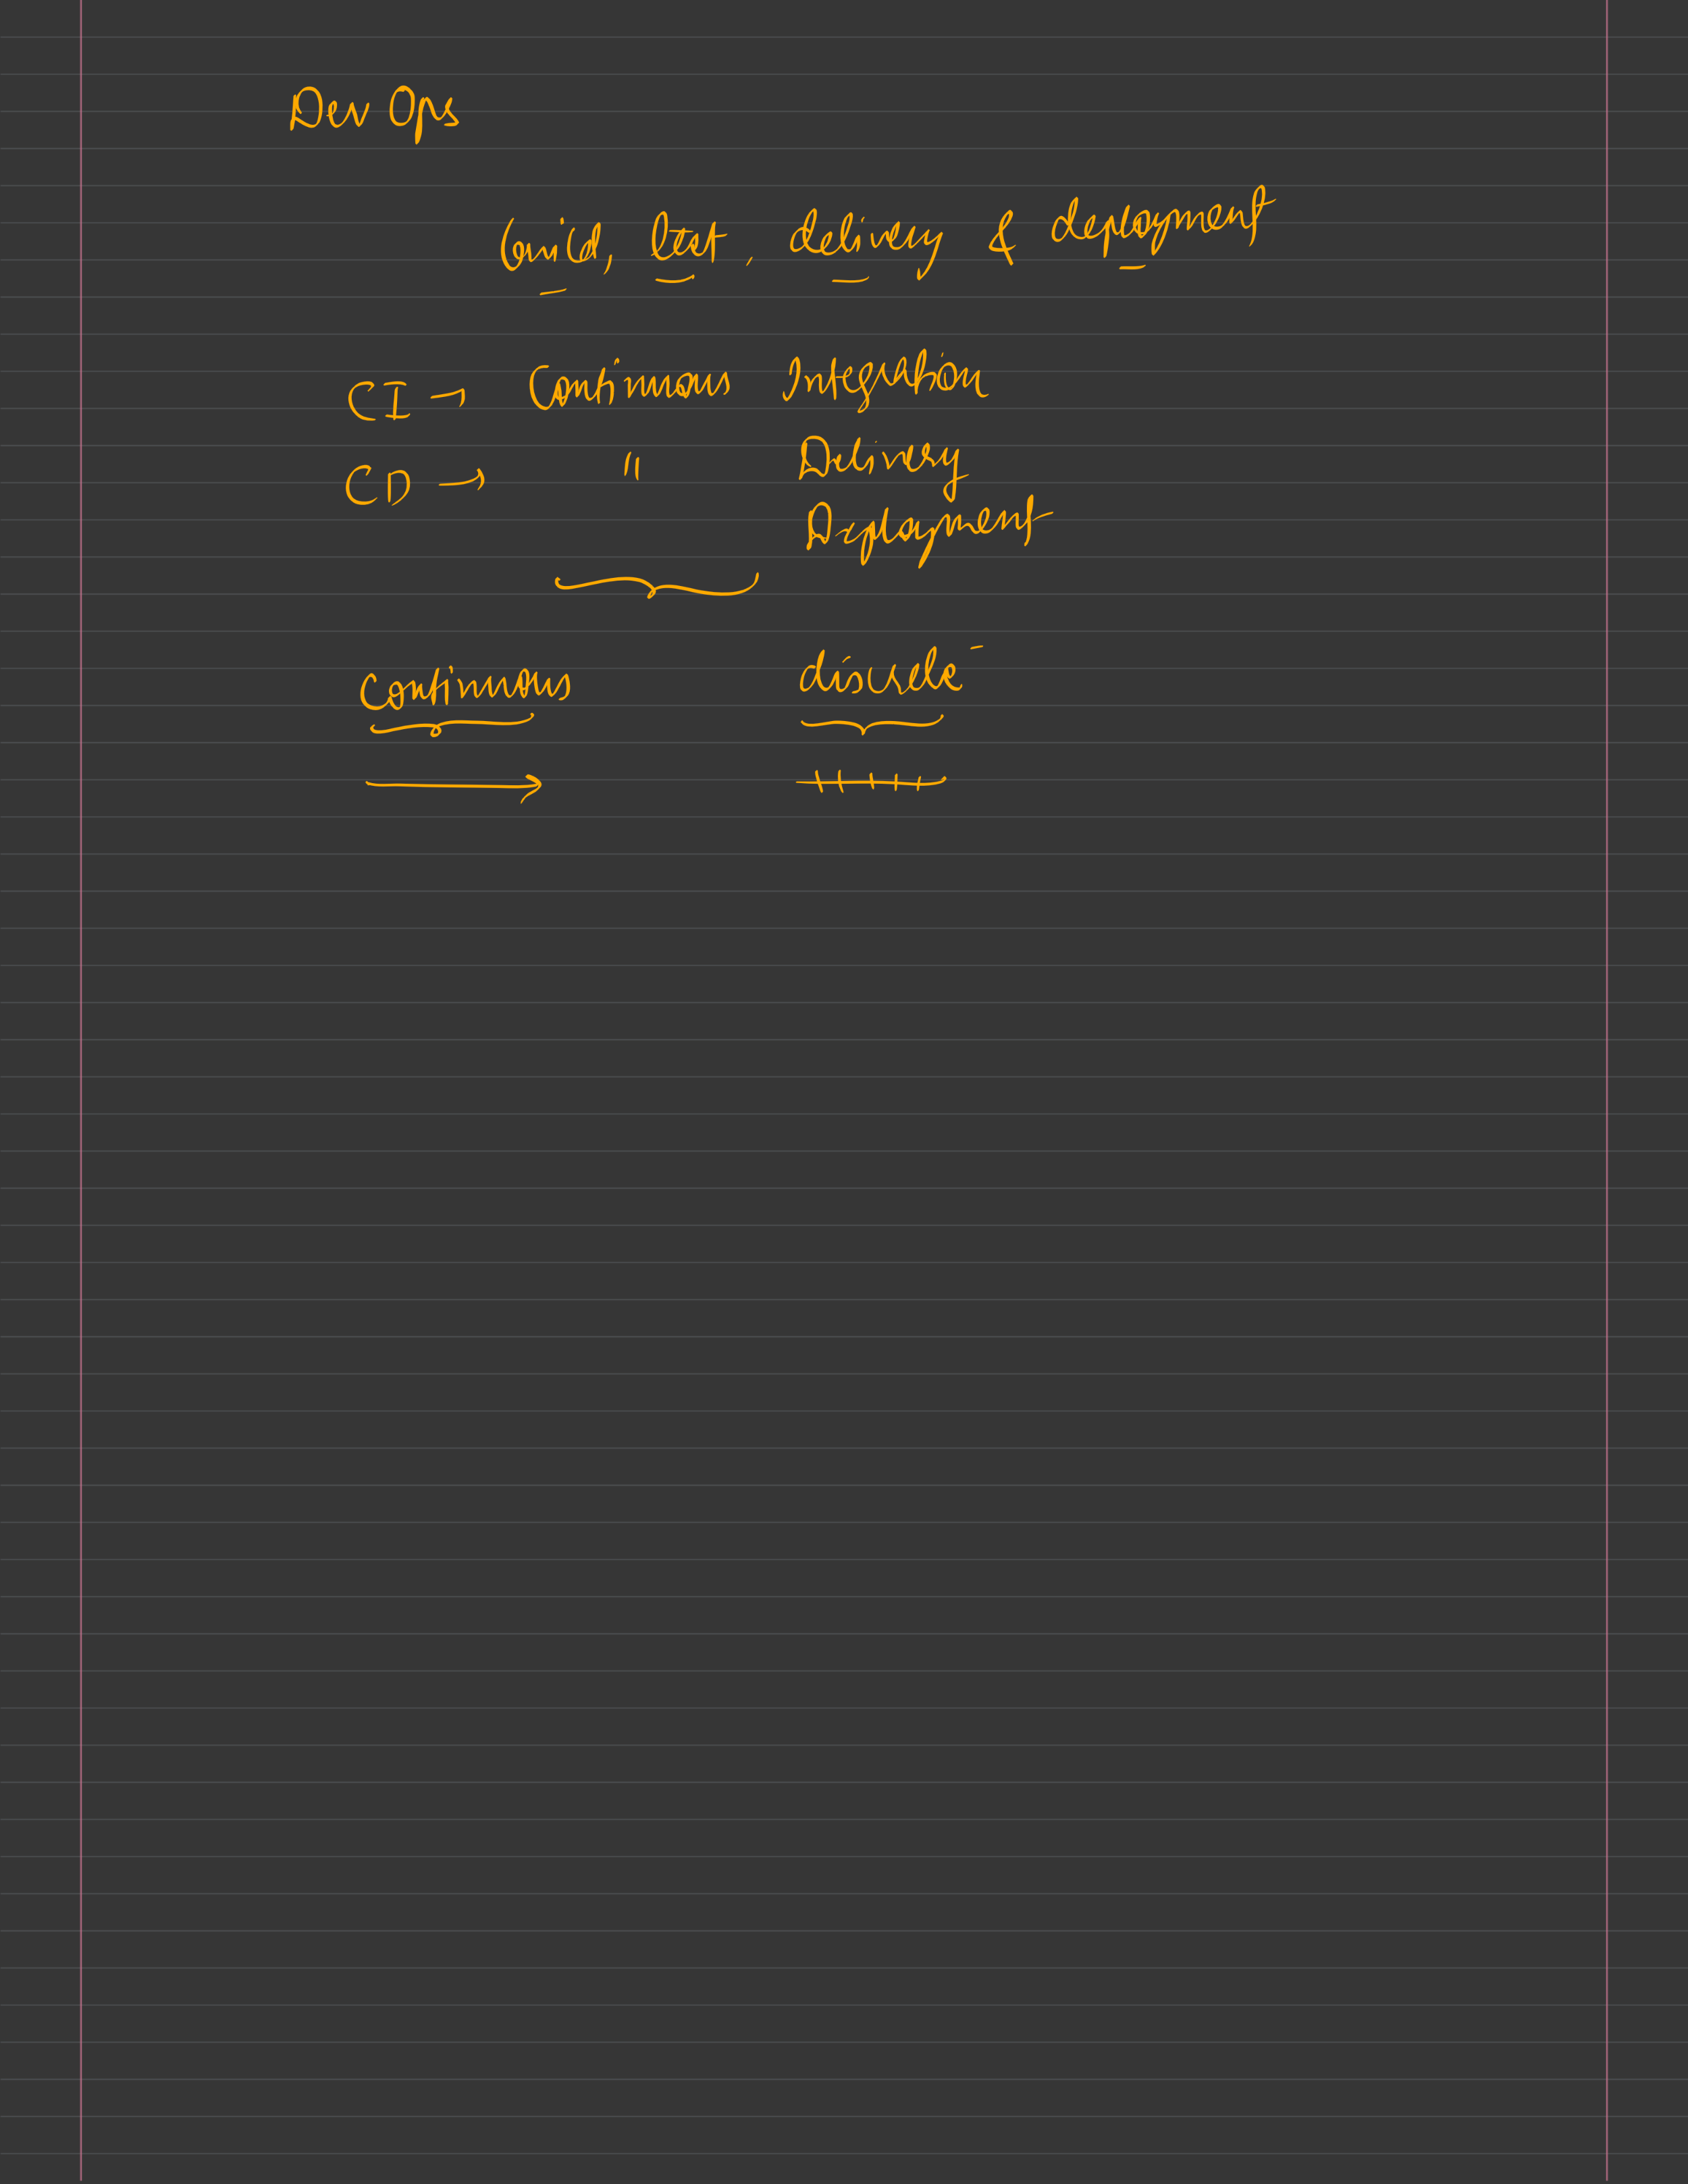 Dev Ops
build, test, delivery & deployment
CI → Continuous Integration
CD → " Delivery
Deployment
Continuous discrete